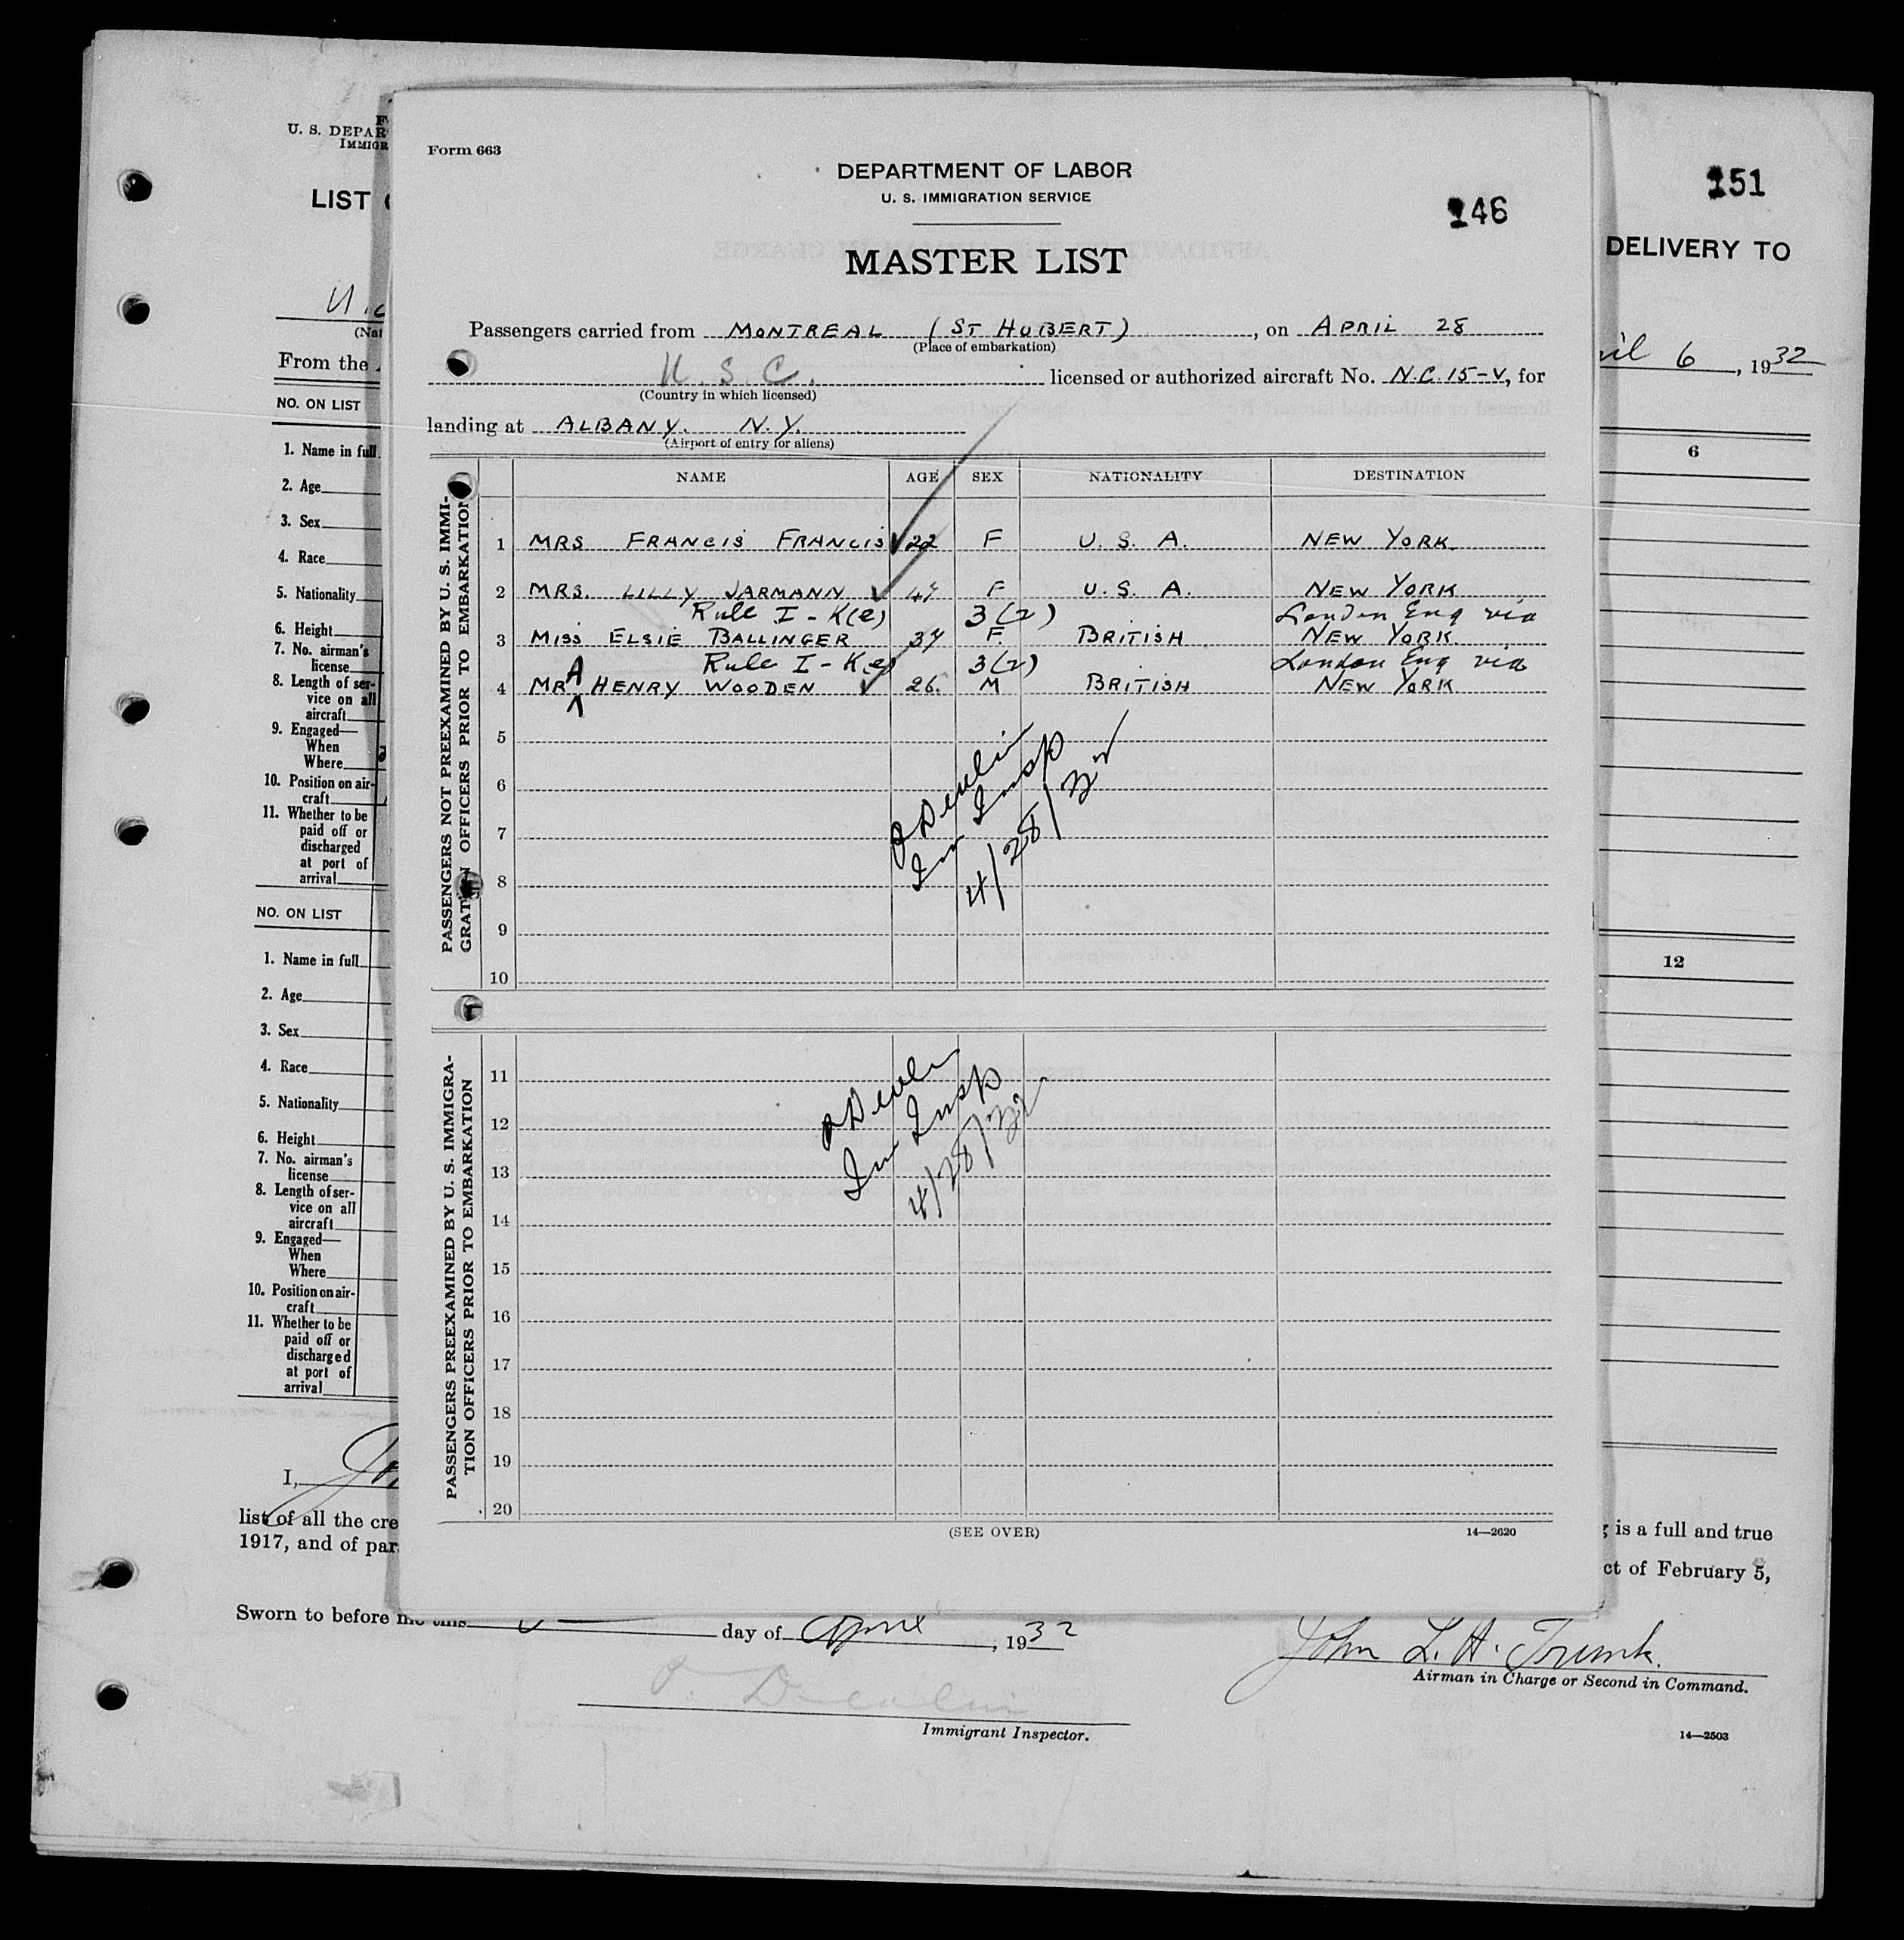 Form 663
DEPARTMENT OF LABOR
U. S. IMMIGRATION SERVICE
146
MASTER LIST
Passengers carried from MONTREAL (ST HUBERT), on APRIL 28
(Place of embarkation)
licensed or authorized aircraft No. N.C. 15-V, for
(Country in which licensed)
landing at ALBANY. N.Y.
(Airport of entry for aliens)
PASSENGERS NOT PREEXAMINED BY U. S. IMMI-
GRATION OFFICERS PRIOR TO EMBARKATION
NAME AGE SEX NATIONALITY DESTINATION
1 MRS FRANCIS FRANCIS 22 F U. S. A. NEW YORK.
2 MRS. LILLY JARMANN F U. S. A. NEW YORK
Rule I - K(e) 3(2) London Eng via
3 MISS ELSIE BALLINGER 37 F. BRITISH NEW YORK.
Rule I - K(e) 3(2) London Eng via
4 MR A HENRY WOODEN 26. M BRITISH NEW YORK
5
6
7
8
9
10
Devlin
Im Insp
4/28/32
PASSENGERS PREEXAMINED BY U. S. IMMIGRA-
TION OFFICERS PRIOR TO EMBARKATION
11
12
13
14
15
16
17
18
19
20
Devlin
Im Insp
4/28/32
(SEE OVER)
14—2620
U. S. DEPAR
IMMIGR
LIST
151
DELIVERY TO
(Nat
From the
6, 1932
NO. ON LIST
6
1. Name in full
2. Age
3. Sex
4. Race
5. Nationality
6. Height
7. No. airman's
license
8. Length of ser-
vice on all
aircraft
9. Engaged—
When
Where
10. Position on air-
craft
11. Whether to be
paid off or
discharged
at port of
arrival
NO. ON LIST
12
1. Name in full
2. Age
3. Sex
4. Race
5. Nationality
6. Height
7. No. airman's
license
8. Length of ser-
vice on all
aircraft
9. Engaged—
When
Where
10. Position on air-
craft
11. Whether to be
paid off or
discharged
at port of
arrival
I,
list of all the cre
is a full and true
1917, and of par
ct of February 5,
Sworn to before me this day of April, 1932
John L. H. Trunk.
Airman in Charge or Second in Command.
Devlin
Immigrant Inspector.
14—2503